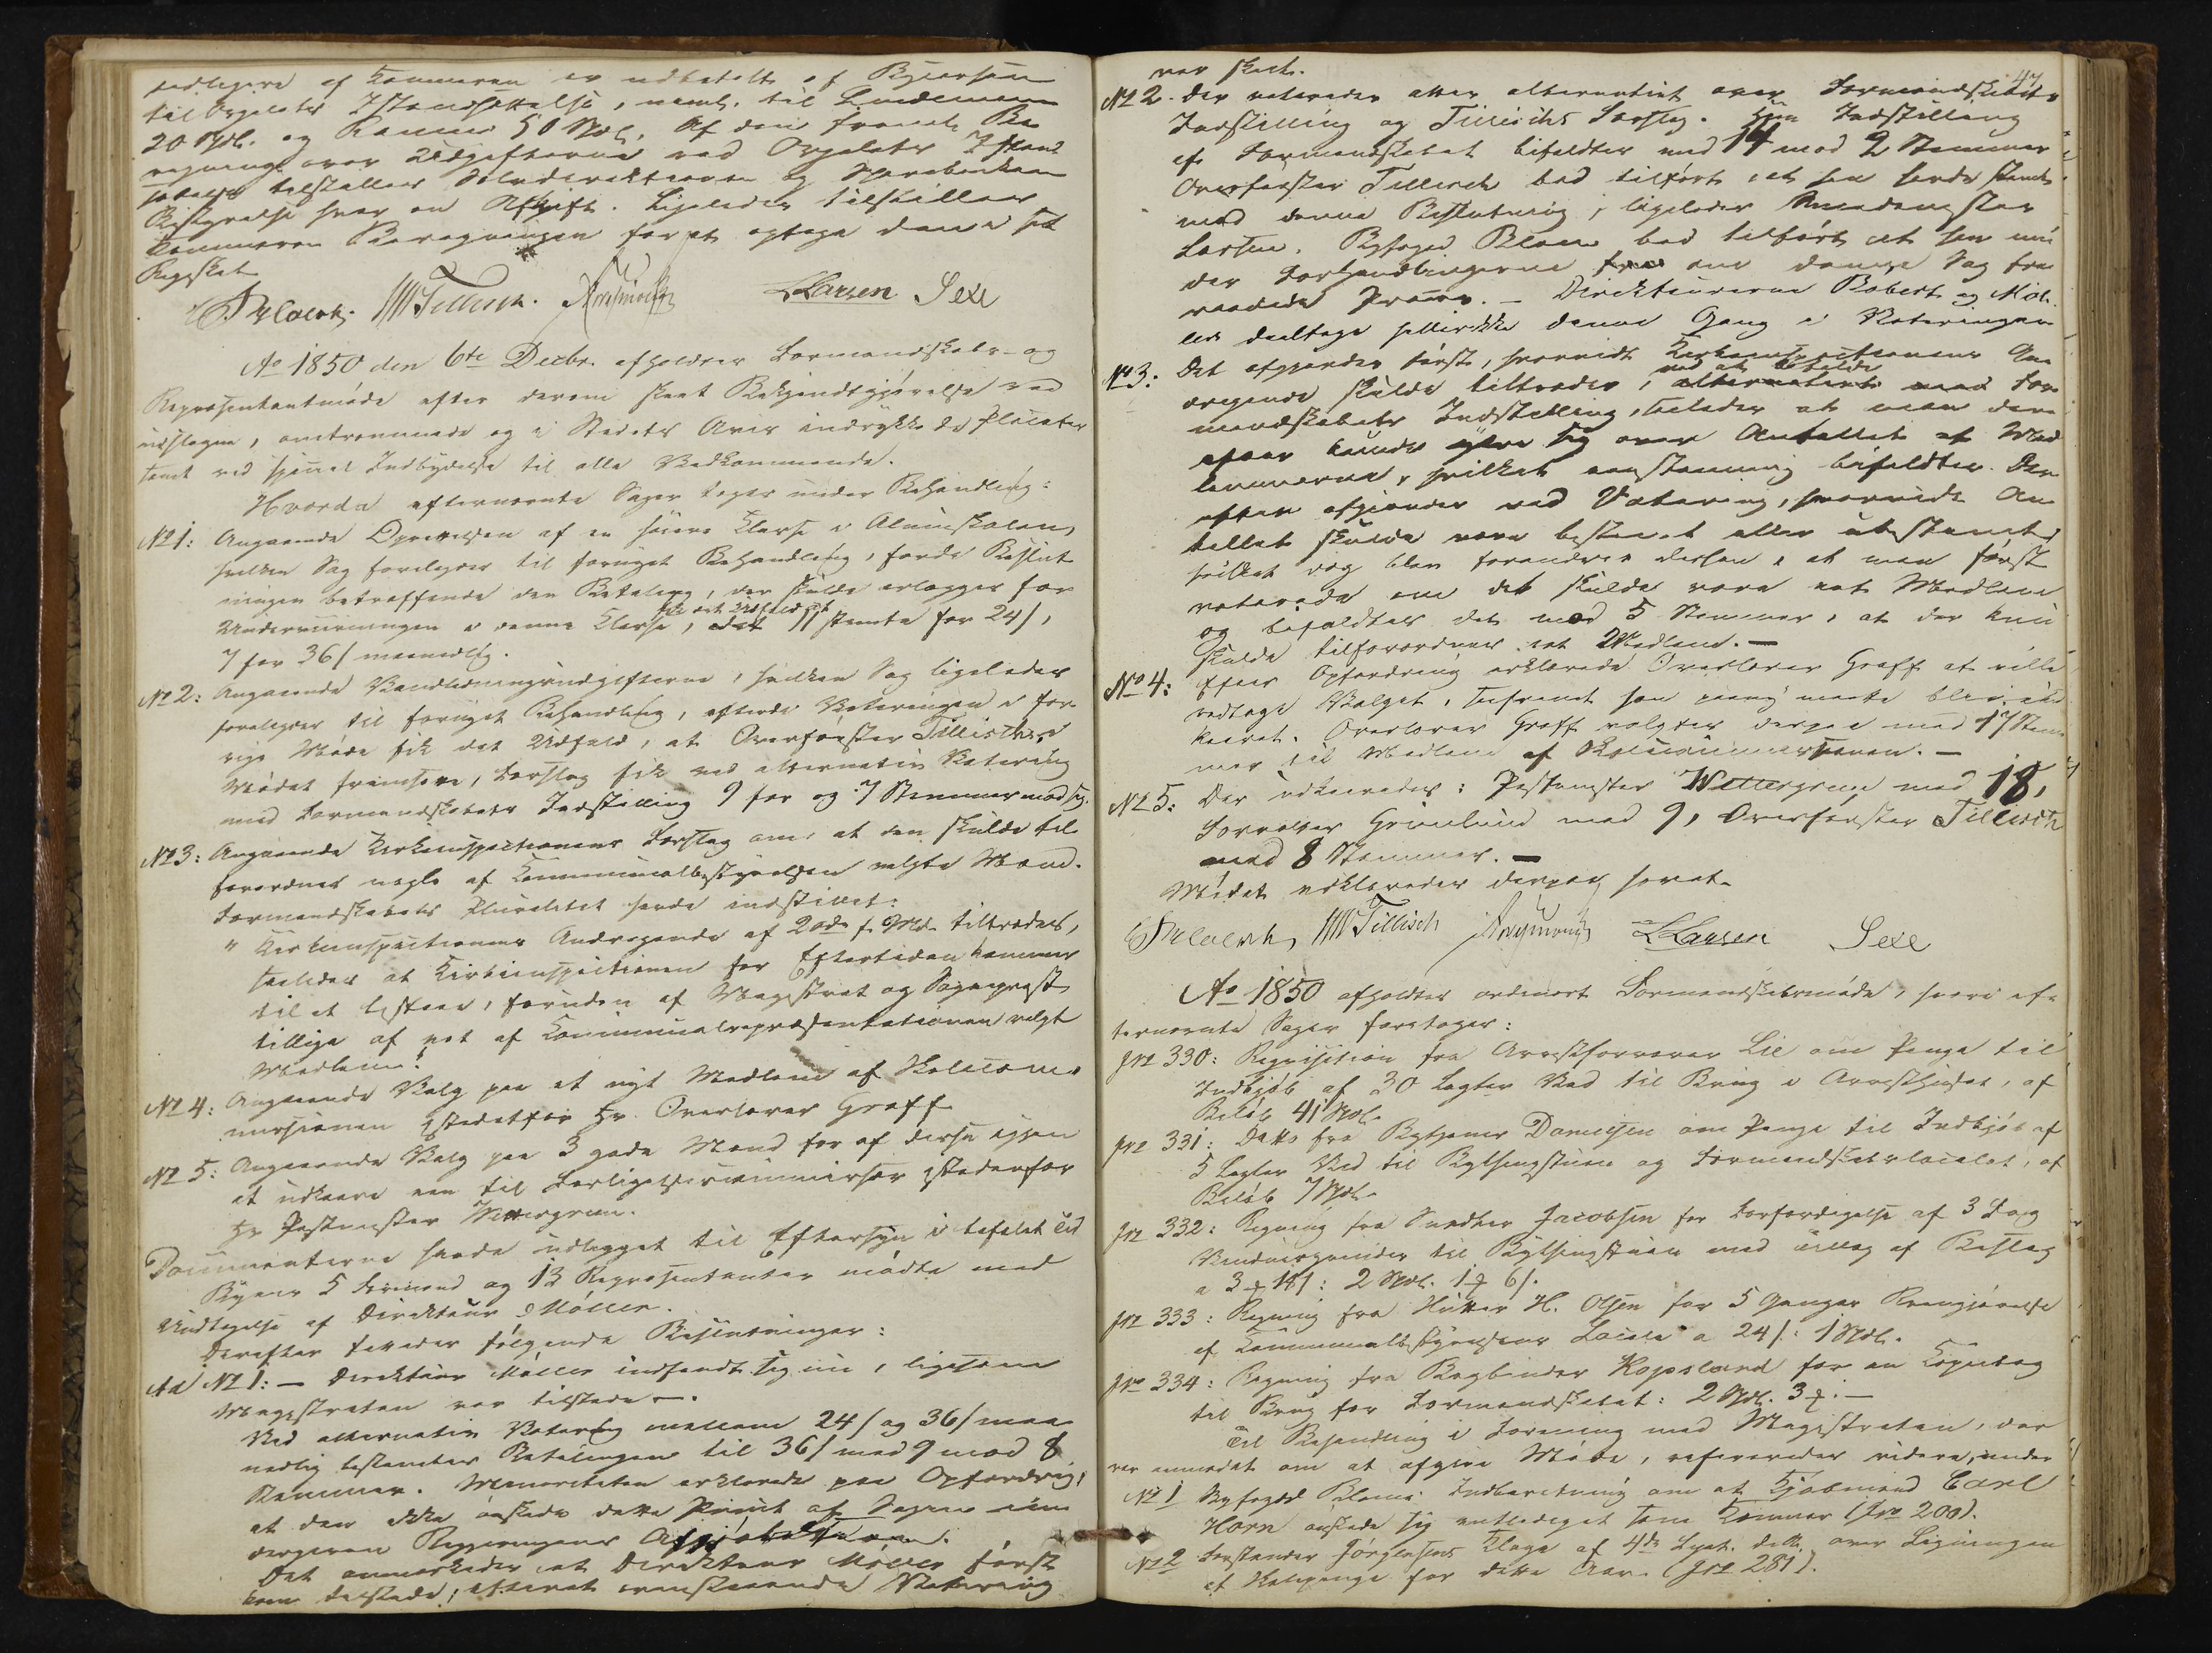 vedligere af Kæmneren er udbetalt af Bycassen
til Orgelets Istandsættelse, neml. til Lindemann
20 Spdl. og Ramme 50 Spdl. Af den forede Be
regning over Udgifterne ved Orgelets Istand
sættelse tilstilles Sølvdirektionen og Sparebankens
Bestyrelse hver en Afskrift. Ligeledes tilstilles
Kæmneren Beregningen for at optage den i sit
Regnskab
Tillisch. Rasmussen L Larsen Sexe
Ao 1850 den 6te Decbr. afholdtes Formandskabs- og
Repræsentantmøde efter derom skeet Bekjendtgjørelse ved
udslagne, omtrommede og i Stedets Avis indrykkede Placater
samt ved speciel Indbydelse til alle Vedkommende.
Hvorda efternævnte Sager toges under Behandling:
No 1: Angaaende Oprettelsen af en høiere Klasse i Almueskolen,
hvilken Sag forelægges til fornyet Behandling, fordi Beslut
ningen betræffende den Betaling, der skulde erlægges for
Underviisningen i denne Klasse, fik det Udfald at 11 stemte for 24 s,
7 for 36 s maanedlig.
No 2: Angaaende Vandledningsudgifterne, hvilken Sag ligeledes
forelægges til fornyet Behandling, efterdi Voteringen i for
rige Møde fik det Udfald, at Overførster Tillisch's i
Mødet fremsatte, Forslag fik ved alternativ Votering
med Formandskabets Indstilling 9 for og 7 Stemmer mod sig.
No 3: Angaaende Kirkeinspectionens Forslag om at den skulde til
forordnes nogle af Communalbestyrelsen valgte Mænd.
Formandskabets Pluralitet havde indstillet:
" Kirkeinspectionens Andragende af 20de f. Md. tiltrædes,
saaledes at Kirkeinspectionen for Eftertiden kommer
til at bestaae, foruden af Magistrat og Sogneprest
tillige af et af Communalrepræsentationen valgt
Medlem."
No 4: Angaaende Valg paa et nyt Medlem af Skolecom-
missionen istedetfor Hr. Overlærer Graff
No 5: Angaaende Valg paa 3 gode Mænd for af disse igjen
at udkaare een til Forligelsescommissær istedenfor
Hr Postmester Wettergreen.
Documenterne havde udlagget til Eftersyn i befalet Tid
Byens 5 Formænd og 13 Repræsentanter mødte med
Undtagelse af Direkteur Møller.
Derefter fattedes følgende Beslutninger:
Ad No 1: — Direkteur Møller indfandt sig nu, ligesom
Magistraten var tilstede —.
Ved alternativ Votering mellem 24 s og 36 s maa
nedlig bestemtes Betalingen til 36 s med 9 mod 8
Stemmer. Minoriteten erklærede paa Opfordring,
at den ikke ønskede dette Punct af Sagen
Regjeringens Afgjørelse
Det anmærkedes, at Direkteur Møller først
kom tilstede, efterat ovenstaaende Votering
47
var skeet.
No 2. Der voteredes atter alternativt over Formandskabets
Indstilling og Tillisch's Forslag. Hiin Indstilling
af Formandskabet bifaldtes med 14 mod 2 Stemmer
Overførster Tillisch bad tilført, at han havde stemt
mod denne Beslutning, ligeledes
Larsen. Byfoged Blom bad tilført at han un
der Forhandlingerne om denne Sag fra
traadte Præses. — Direkteurerne Robert og Møl
ler deeltoge heller ikke denne Gang i Voteringen
No 3: Det afgjordes først, hvorvidt Kirkeinspectionens An
dragende skulde tiltrædes, ved at bifalde For
mandskabets Indstilling, saaledes at man der
efter kunde ytre sig over Antallet af Med
lemmerne, hvilket eenstemmig bifaldtes. Der
efter afgjordes ved Votering, hvorvidt An
tallet skulde være bestemt eller ubestemt,
hvilket dog blev forandret derhen, at man først
voterede om det skulde være eet Medlem
og bifaldtes det med 5 Stemmer, at der kun
skulde tilforordnes eet Medlem. —
No 4: Efter Opfordring erklærede Overlærer Graff at ville
modtage Valget, saafremt han paany maatte blive ud
kaaret. Overlærer Graff valgtes derpaa med 17 Stem
mer til Medlem af Skolecommissionen. —
No 5: Der udkaaredes: Postmester Wettergreen med 18,
Forvalter Grønlund med 9, Overførster Tillisch
med 8 Stemmer. —
Mødet erklæredes derpaa hævet.
Tillisch Rasmussen L Larsen Sexe
Ao 1850 afholdtes ordinært Formandskabsmøde, hvori ef-
ternævnte Sager foretoges:
Jno 330: Requisition fra Arrestforvarer Lie om Penge til
Indkjøb af 30 Favne Ved til Brug i Arresthuset, af
Beløb 41 Spdl.
Jno 331: Ditto fra Bytjener Danielsen om Penge til Indkjøb af
5 Favne Ved til Bythingstuen og Formandskabslocalet, af
Beløb 7 Spdl.
Jno 332: Regning fra Snedker Jacobsen for Forfærdigelse af 3 Fag
Vinduesrammer til Bythingstuen med Tillæg af Beslag
a 3 18 s: 2 Spdl. 1 6 s.
Jno 333: Regning fra H. Olsen for 5 Ganges Rengjørelse
af Communalbestyrelsens Locale a 24 s: 1 Spdl.
Jno 334: Regning fra Bogbinder Kopsland for en Copiebog
til Brug for Formandskabet: 2 Spdl. 3 . —
Til Behandling i Forening med Magistraten, der
var anmodet om at afgive Møde, refereredes videre, under
No 1 Byfoged Bloms Indberetning om at Kjøbmand Carl
Horn ønskede sig entlediget som Kæmner (Jno 200).
No 2 Forstander Jørgensens Klage af 4de Sept. dette over Ligningen
af Skolepenge for dette Aar. (Jno 281).